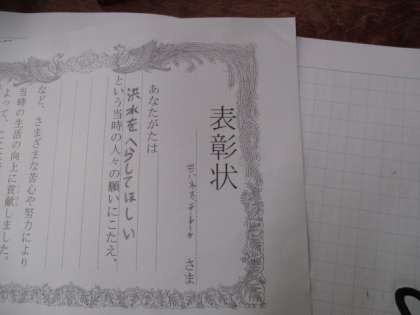 表彰状
ヨハネス・デレーケ さま
あなたがたは
洪水をへらしてほしい
という当時の人々の願いにこたえ、
など、さまざまな苦心や努力により
当時の生活の向上に貢献しました。
よって、ここに